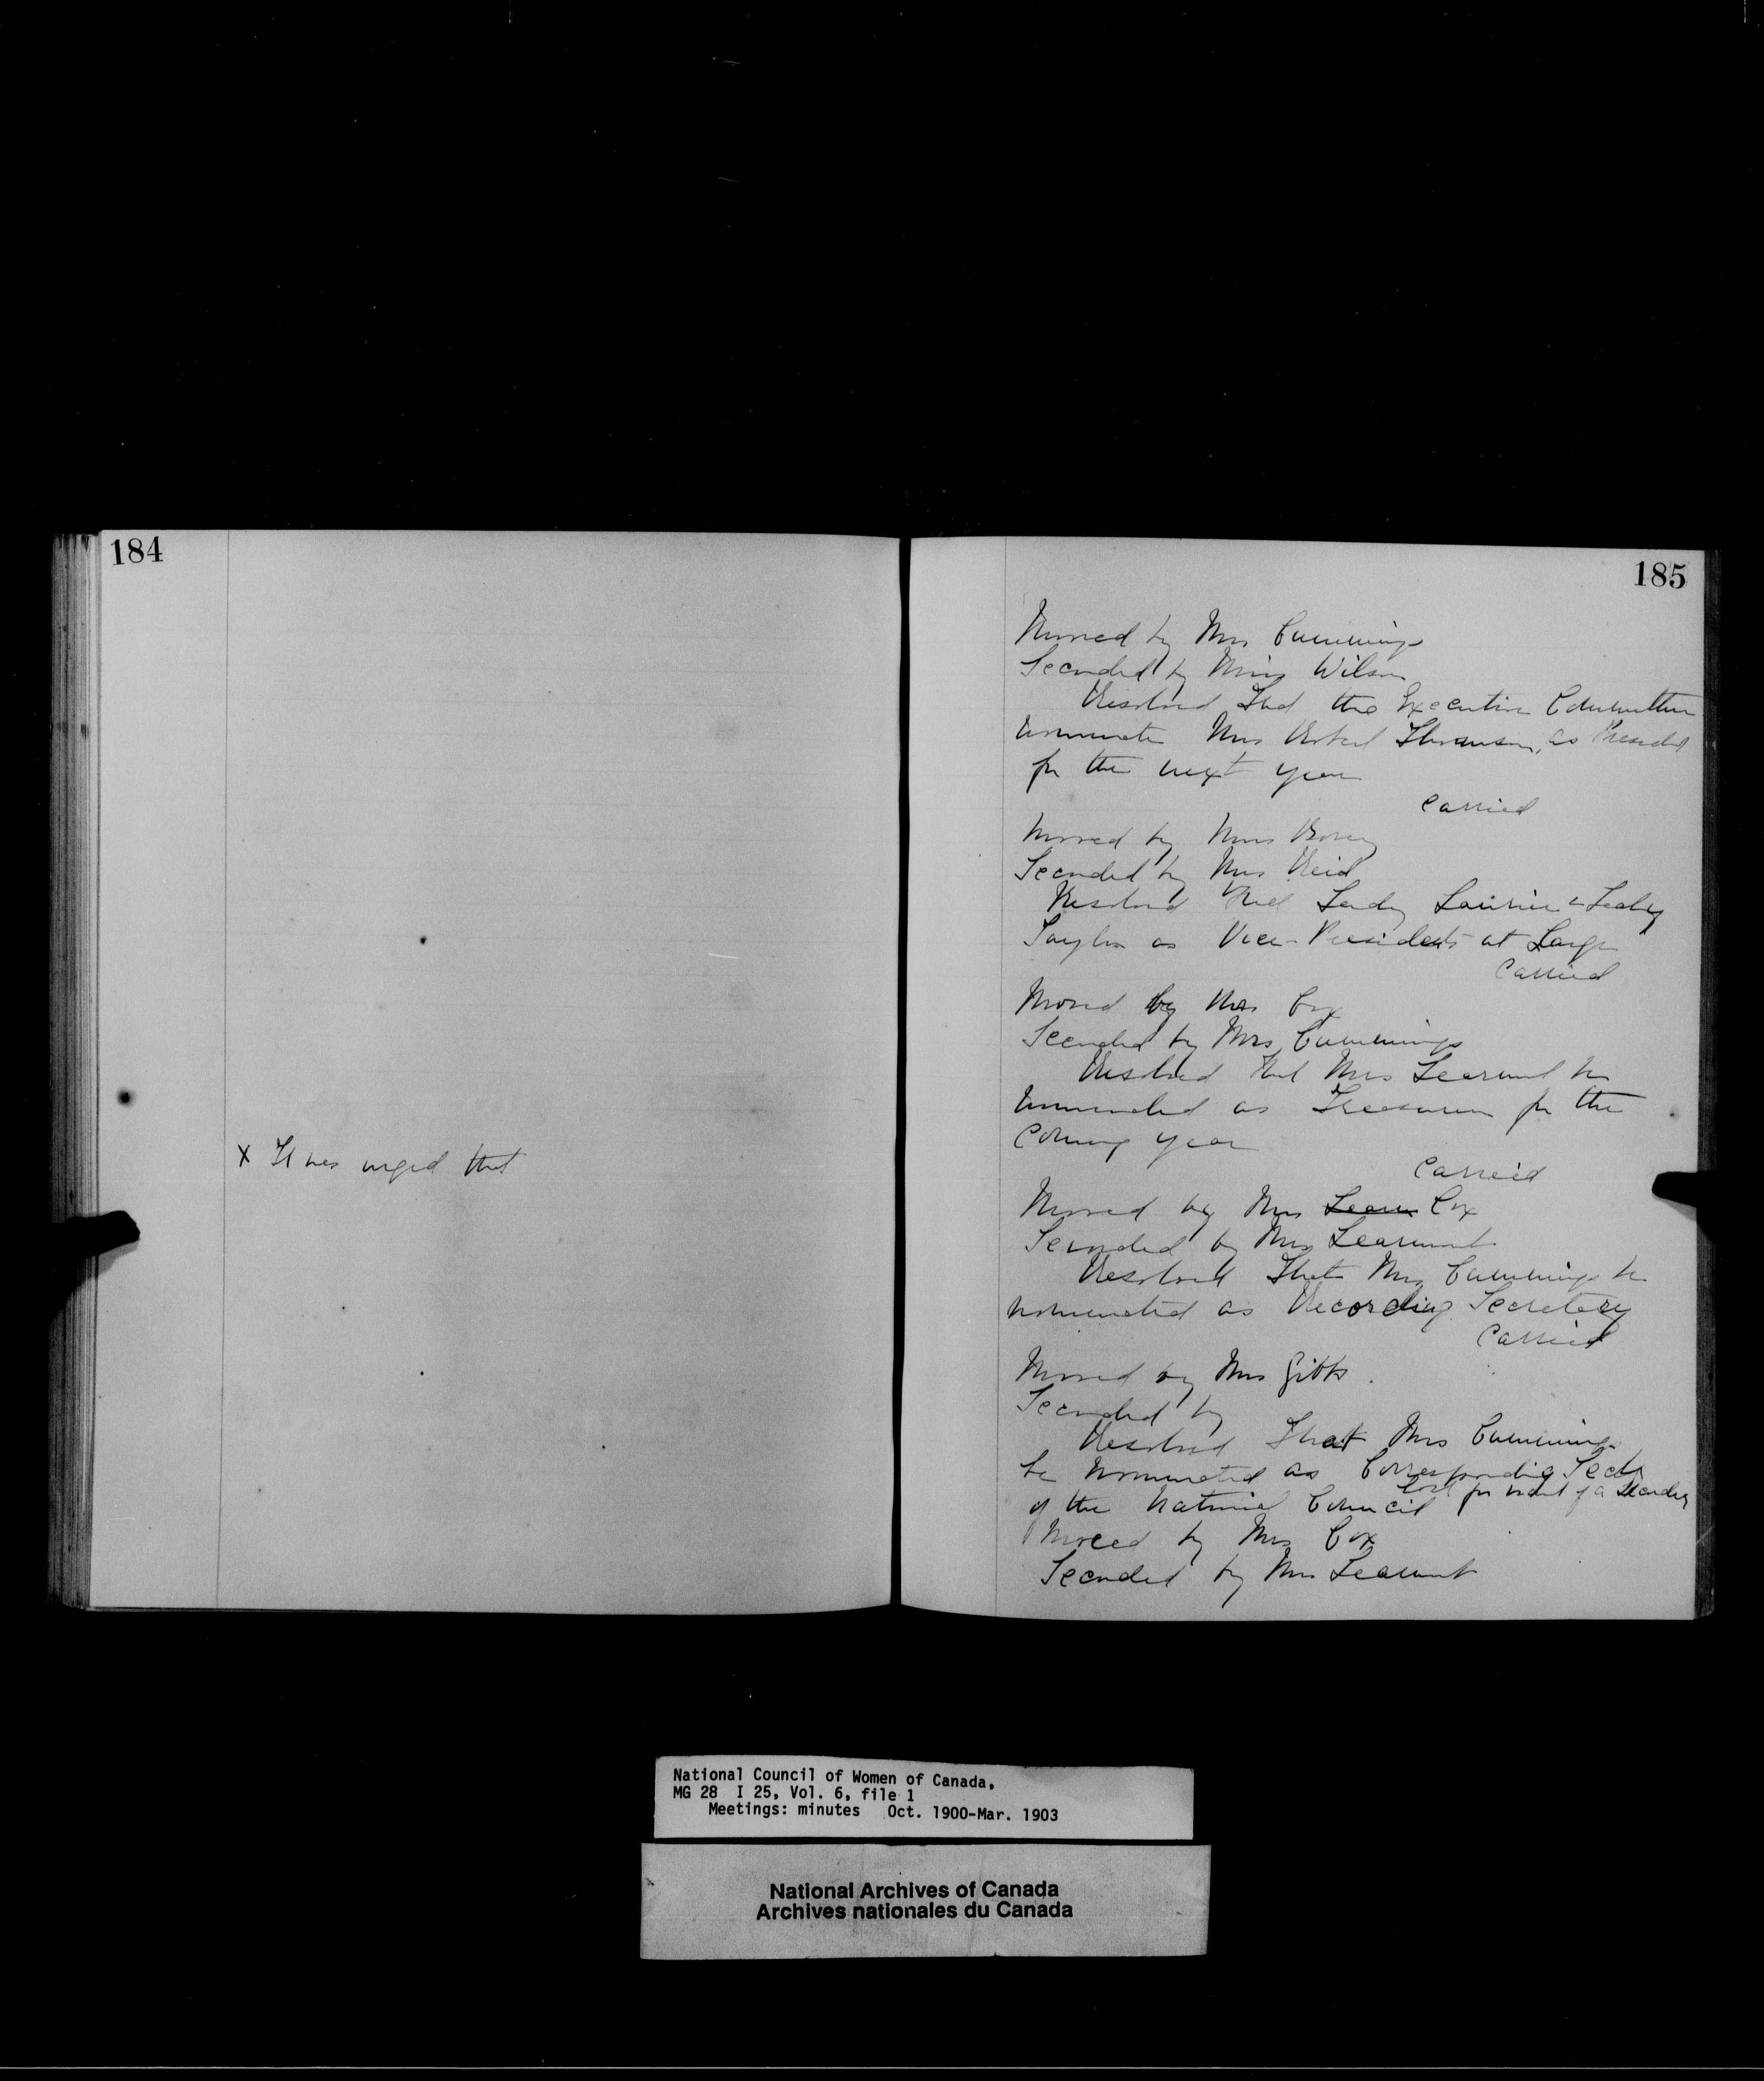 184
X It was urged that
185
Moved by Mrs Cummings
Seconded by Miss Wilson
Resolved That the Executive Committee
nominate Mrs Robert Thomson, as President
for the next year
Carried
Moved by Mrs
Seconded by Mrs Reid
Resolved that Lady Laurier & Lady
Taylor as Vice-Presidents at Large
Carried
Moved by Mrs Cox
Seconded by Mrs Cummings
Resolved that Mrs Learmont be
nominated as Treasurer for the
Coming year
Carried
Moved by Mrs Learm Cox
Seconded by Mrs Learmont
Resolved That Mrs Cummings be
nominated as Recording Secretary
Carried
Moved by Mrs Gibbs.
Seconded by
Resolved That Mrs Cummings
be nominated as Corresponding Secty
of the National Council Lost for want of a Seconder
Moved by Mrs Cox
Seconded by Mrs Learmont
National Council of Women of Canada,
MG 28 I 25, Vol. 6, file 1
Meetings: minutes Oct. 1900-Mar. 1903
National Archives of Canada
Archives nationales du Canada